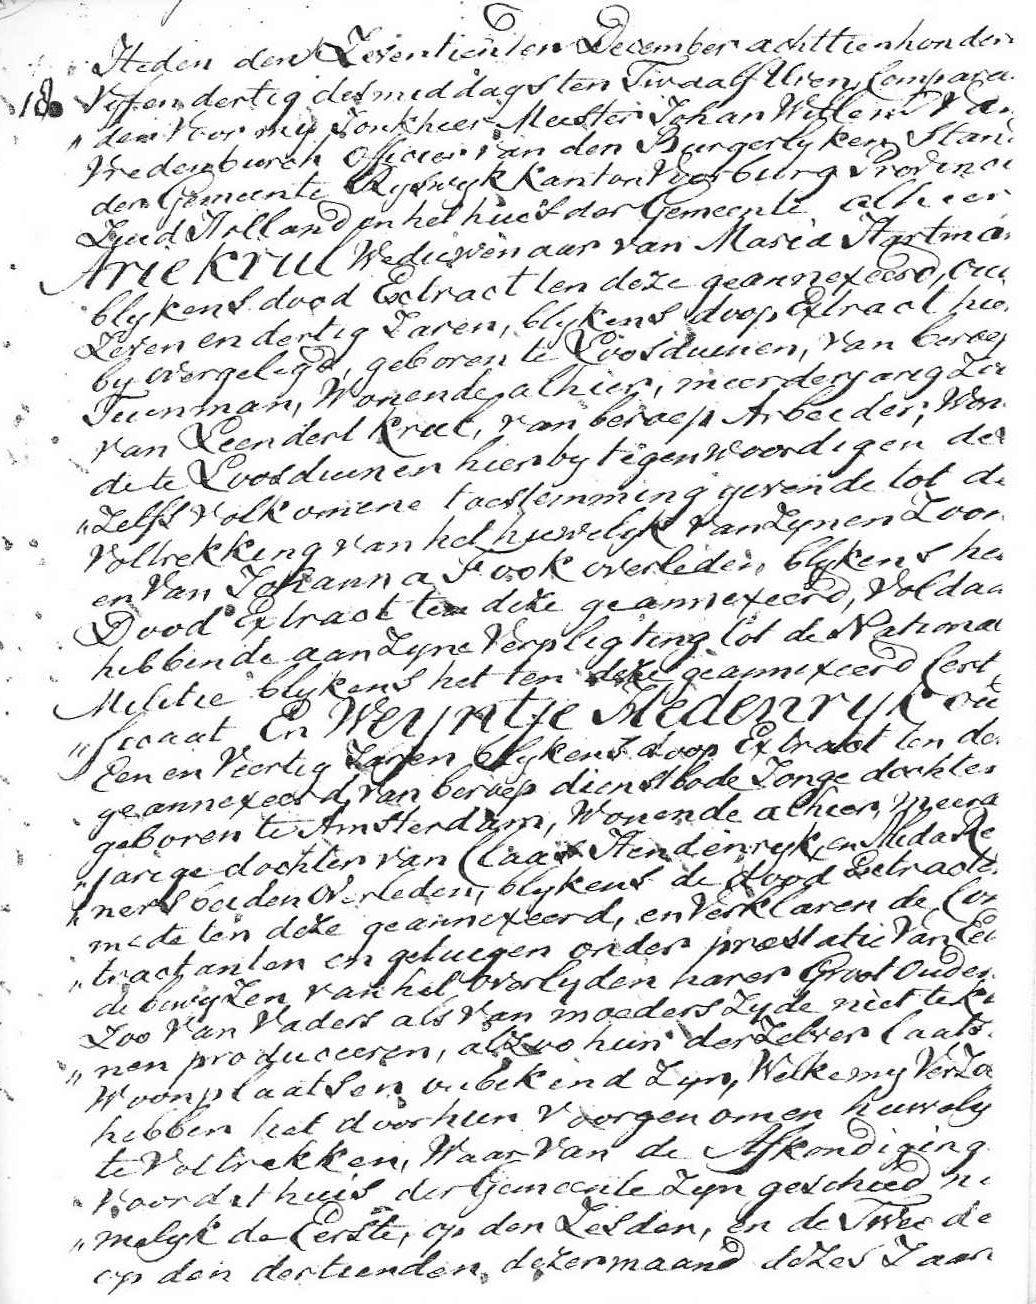 Heden den Zeventienden December achttienhonder
18 Vyf en dertig des middags ten Twaalf Uren, Compara
„ den Voor my Jonkheer Meester Johan Willem Van
Vredenburch Officier van den Burgerlyken Stan
der Gemeente Ryswyk Kanton Voorburg Provinci
Zuid Holland in het huis der Gemeente alhier
Arie Krul Weduwenaar van Maria Hartma
blykens dood Extract ten deze geannexeerd, Ou
Zeven en dertig Jaren, blykens doop Extract hie
by overgelegd, geboren te Loosduinen, van beroep
Tuinman, Wonende alhier, meerderjarig Zo
van Leendert Krul, van beroep Arbeider, Won
de te Loosduinen hierby tegenwoordig en de
„ Zelfs volkomene toestemming gevende tot de
Voltrekking van het huwelyk van Zynen Zoon
en Van Johanna Fook overleden, blykens he
Dood Extract ten deze geannexeerd, Voldaa
hebbende aan Zyne Verpligting tot de Nationa
Militie blykens het ten deze geannexeerd Cert
„ ficaat En Weyntje Hedenryk ou
Een en Veertig Jaren blykens doop Extract ten de
geannexeerd, van beroep dienstbode Jonge dochter
geboren te Amsterdam, Wonende alhier, meerd
„ jarige dochter van Claas Hendenryk, en Aleda Re
„ ners beiden Overleden, blykens de dood Extracten
mede ten deze geannexeerd, en Verklaren de Con
„ tractanten en getuigen onder prestatie Van Ee
de bewyzen van het Overlyden harer Groot Ouder
Zoo Van Vaders als Van moeders Zyde niet te ku
„ nen produceeren, alzoo hun derzelver laats
Woonplaatsen onbekend Zyn, Welke my Verzo
hebben het door hun voorgenomen huwely
te Voltrekken, Waar Van de Afkondiging
Voor dit huis der Gemeente Zyn geschied n
„ melyk de Eerste, op den Zesden, en de Twee de
op den dertienden, dezer maand dezes Jaars